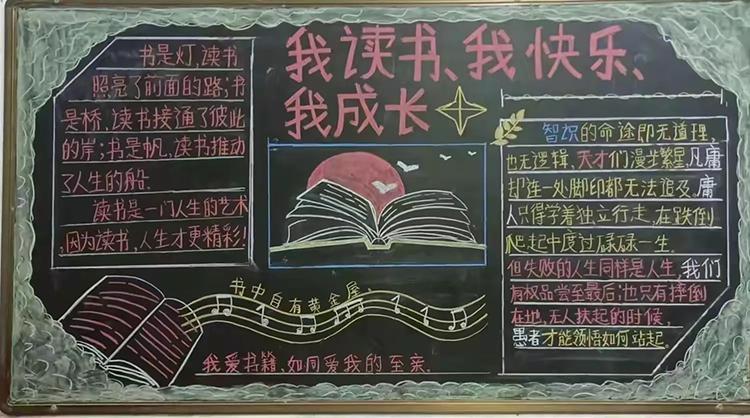 我读书、我快乐、
我成长
书是灯,读书
照亮了前面的路;书
是桥,读书接通了彼此
的岸;书是帆,读书推动
了人生的船.
读书是一门人生的艺术
,因为读书,人生才更精彩!
书中自有黄金屋、
我爱书籍,如同爱我的至亲.
智识的命途即无道理,
也无逻辑,天才们漫步繁星,凡庸
却连一处脚印都无法追及.庸
人只得学着独立行走,在跌倒
爬起中度过碌碌一生。
但失败的人生同样是人生,我们
有权品尝至最后;也只有摔倒
在地、无人扶起的时候,
愚者才能领悟如何站起。